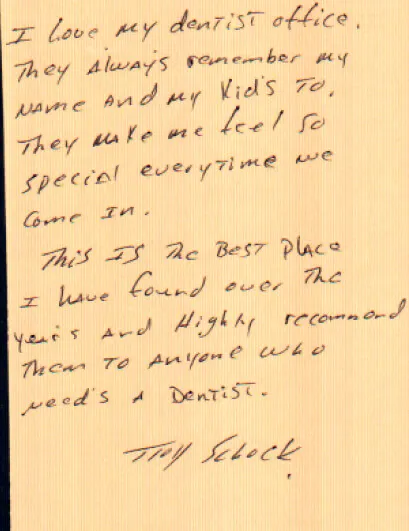 I Love my dentist office.
They Always remember my
name and my Kid's To.
They make me feel so
special everytime we
come In.
This Is The Best Place
I have found over The
year's and Highly recommend
Them To Anyone who
need's A Dentist.
Troy Schock